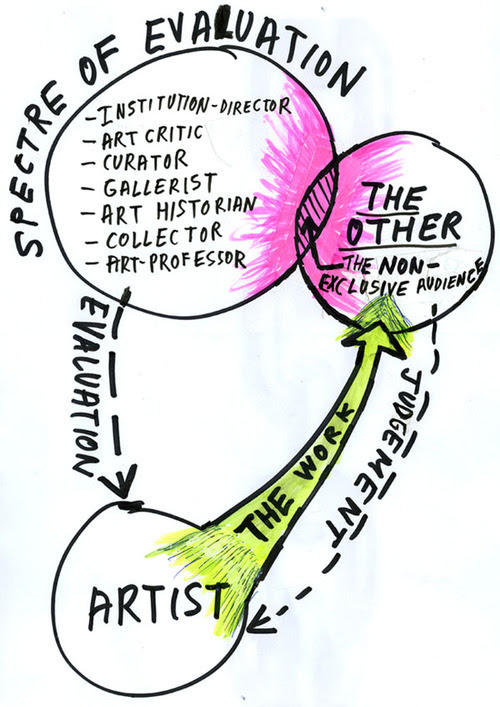 SPECTRE OF EVALUATION
-INSTITUTION-DIRECTOR
-ART CRITIC
-CURATOR
-GALLERIST
-ART HISTORIAN
-COLLECTOR
-ART-PROFESSOR
THE
OTHER
THE NON-
EXCLUSIVE AUDIENCE
EVALUATION
JUDGEMENT
THE WORK
ARTIST